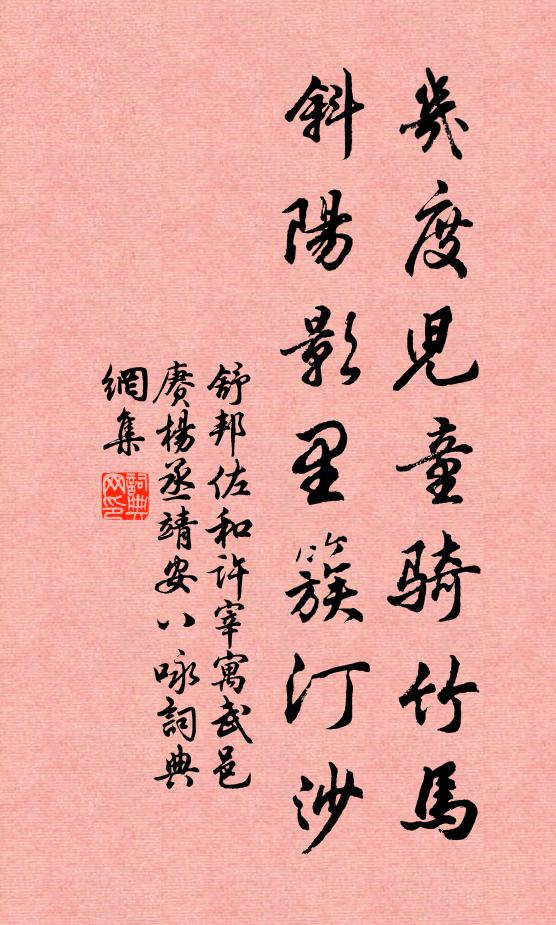 幾度兒童騎竹馬
斜陽影里簇汀沙
舒邦佐和許宰寓武邑
賡楊丞靖安八咏詞典
網集
詞典网印